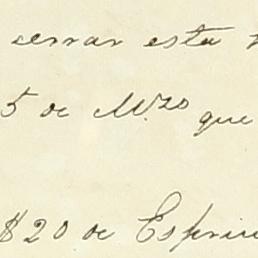 cerrar esta
5 de M.zo que
$20 de Espiri